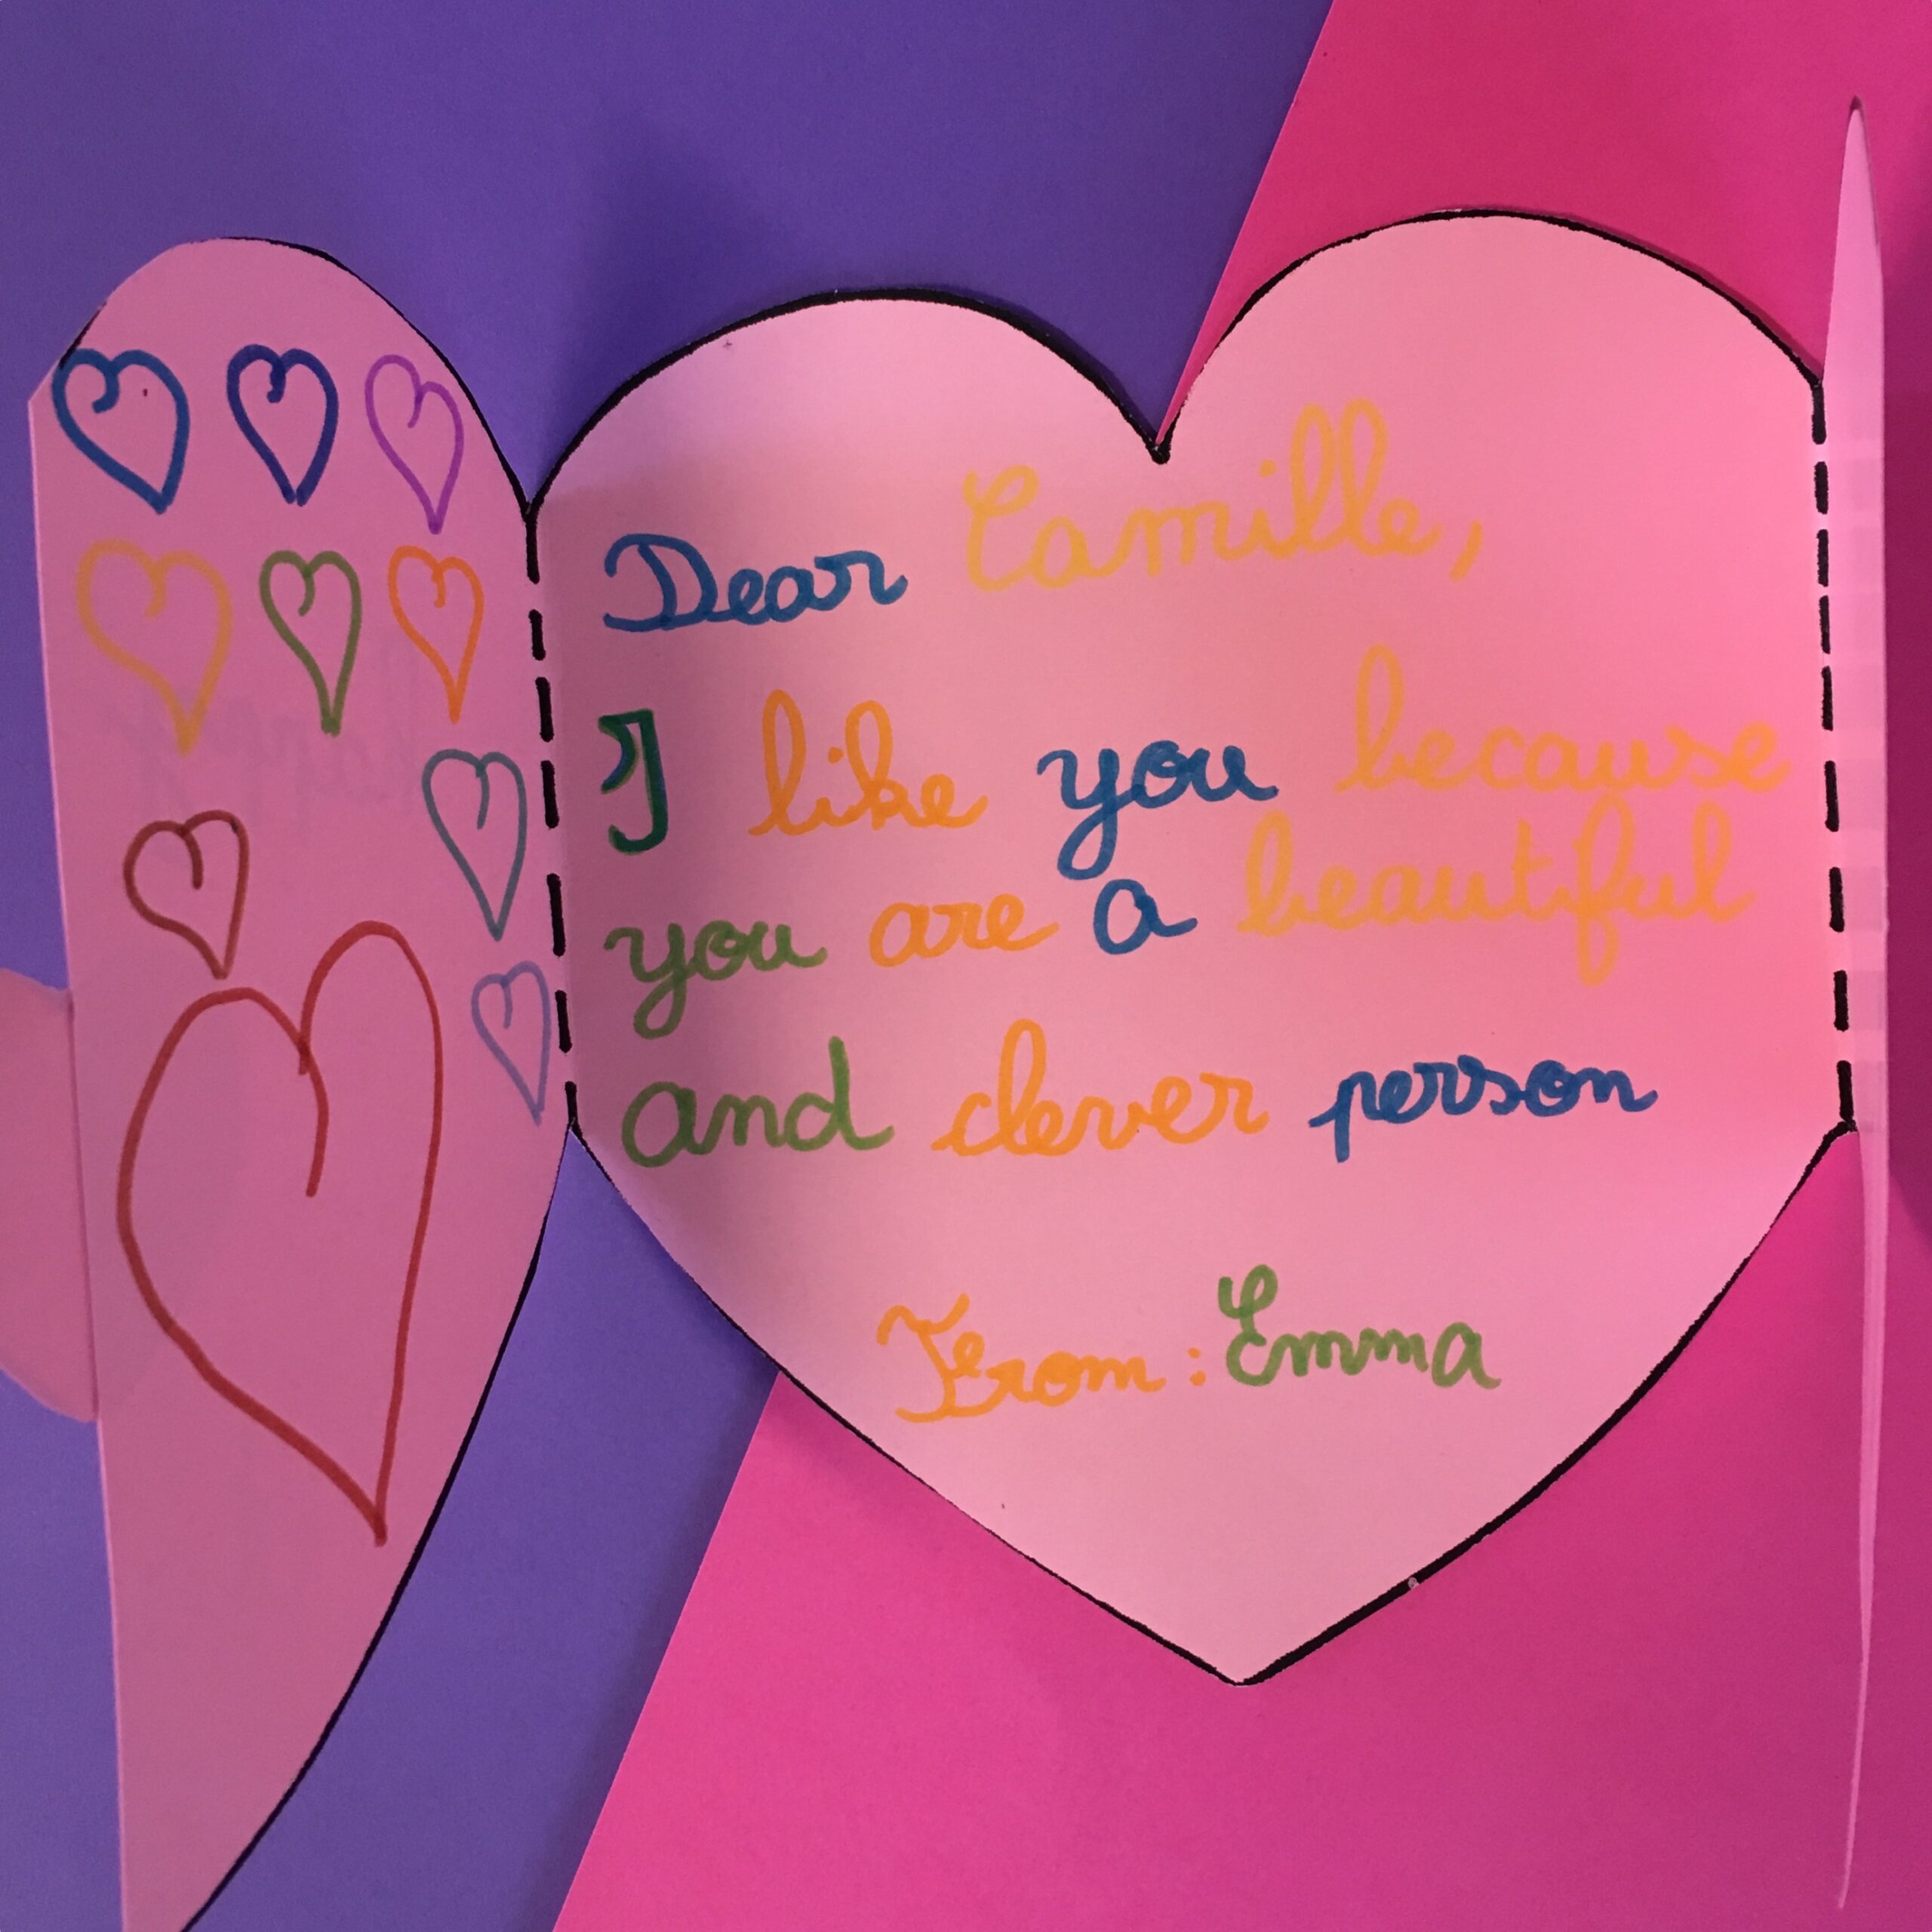 Dear Camille,
I like you because
you are a beautiful
and clever person
From: Emma